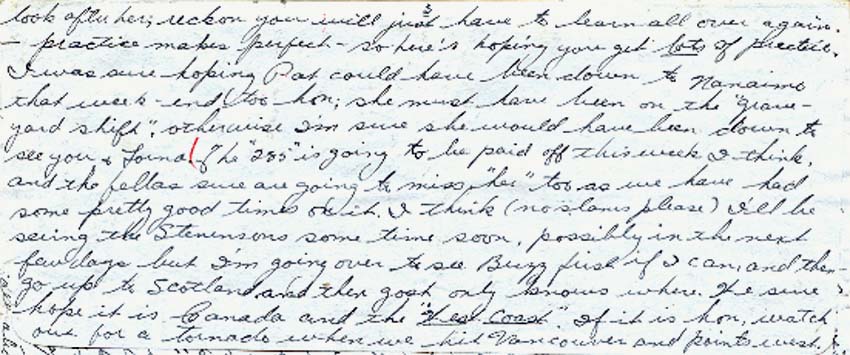 look after her; reckon you will just have to learn all over again.
- practice makes perfect - so here's hoping you get lots of practice.
I was sure hoping Pat could have been down to Nanaimo
that week-end too hon; she must have been on the "grave-
yard shift", otherwise I'm sure she would have been down to
see you & Lorna. The "285" is going to be paid off this week I think,
and the fellas sure are going to miss "her" too as we have had
some pretty good times on it. I think (no slams please) I'll be
seeing the Stevensons some time soon, possibly in the next
few days but I'm going over to see Buzz first if I can, and then
go up to Scotland and then gosh only knows where. We sure
hope it is Canada and the "West Coast". If it is hon, watch
out for a tornado when we hit Vancouver and points west.